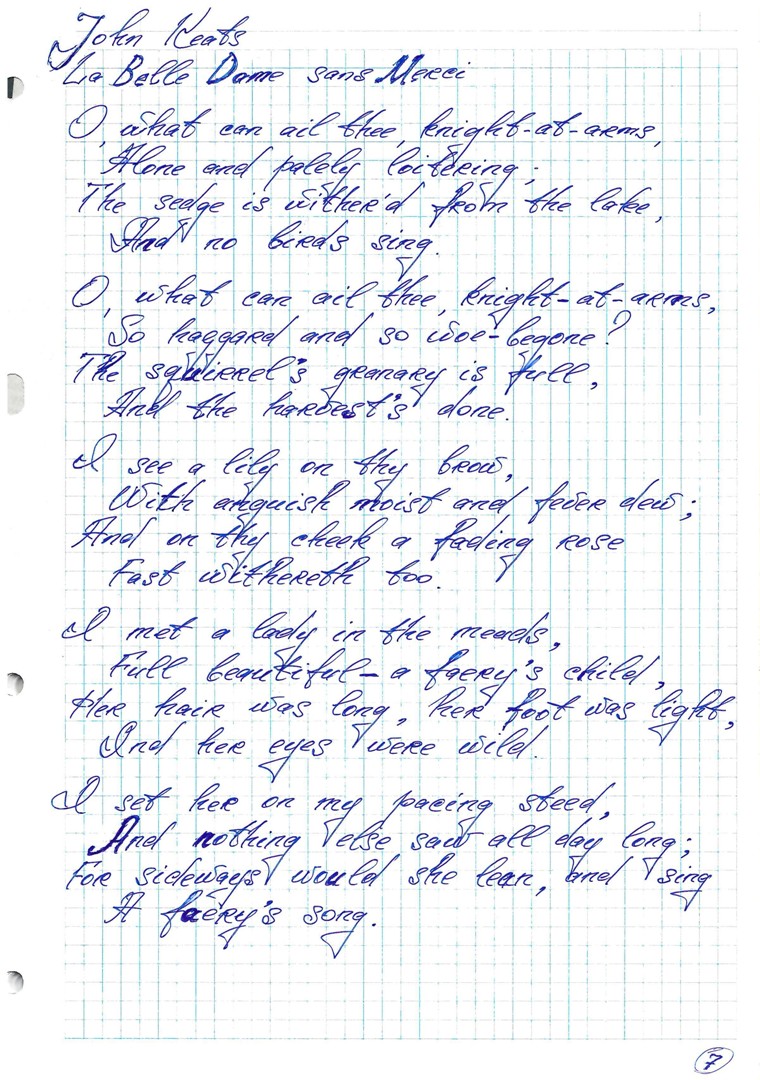 John Keats
La Belle Dame sans Merci
O, what can ail thee, knight-at-arms,
Alone and palely loitering;
The sedge is wither'd from the lake,
And no birds sing.
O, what can ail thee, knight-at-arms,
So haggard and so woe-begone?
The squirrel's granary is full,
And the harvest's done.
I see a lily on thy brow,
With anguish moist and fever dew;
And on thy cheek a fading rose
Fast withereth too.
I met a lady in the meads,
Full beautiful - a faery's child,
Her hair was long, her foot was light,
And her eyes were wild.
I set her on my pacing steed,
And nothing else saw all day long;
For sideways would she lean, and sing
A faery's song.
7